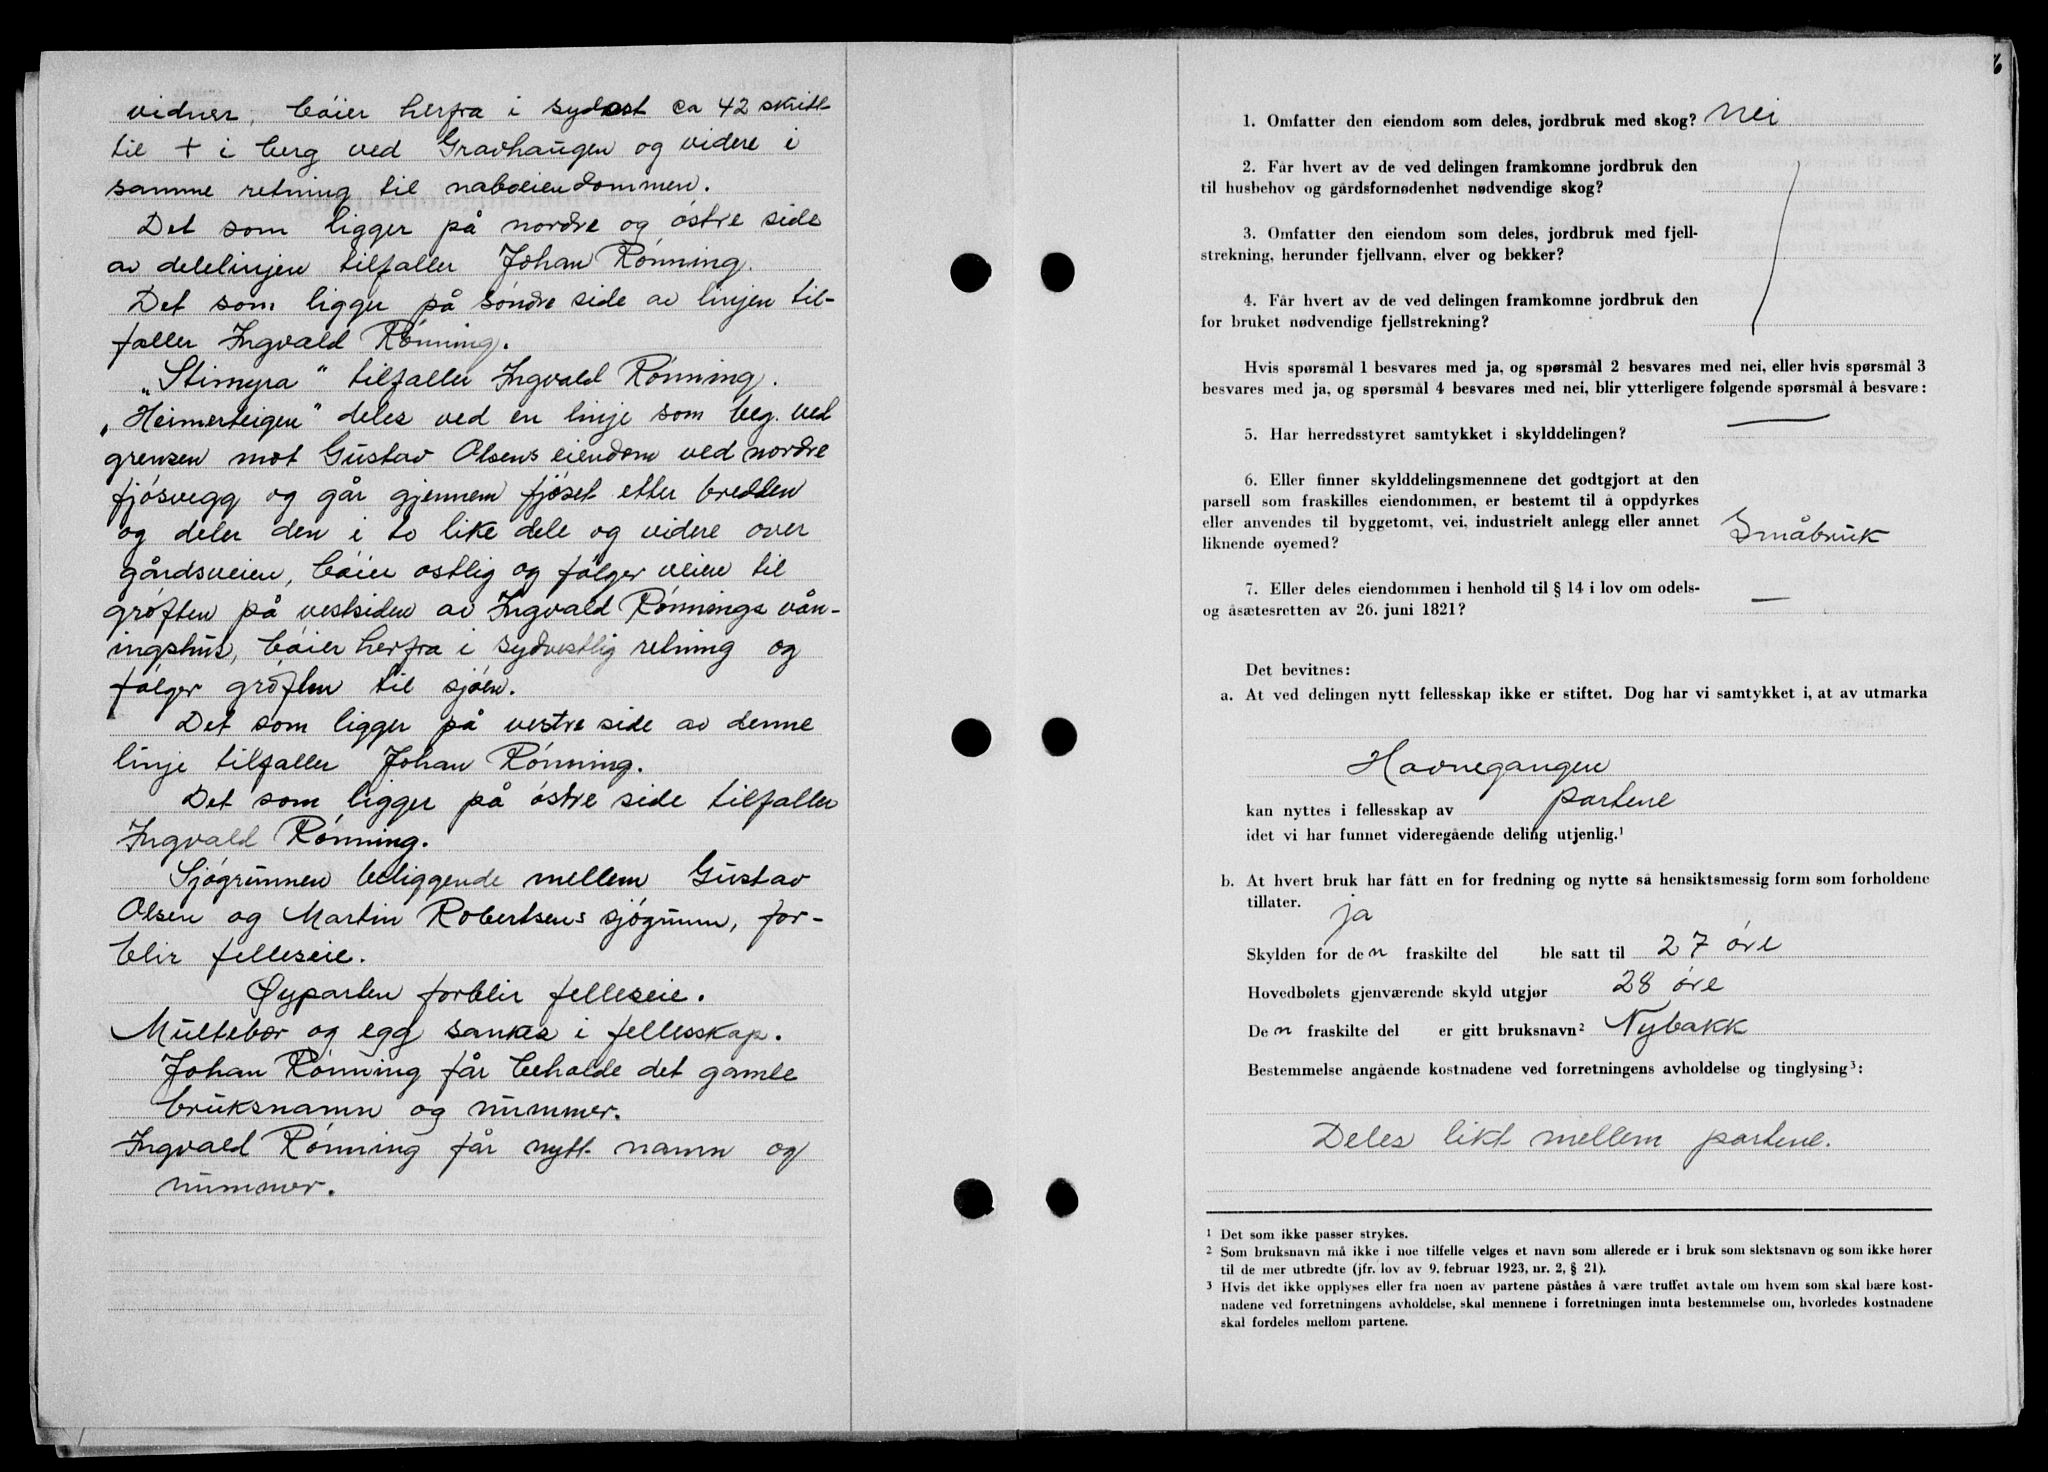 vidner, bøier herfra i sydost ca 42 skritt
til + i berg ved Gravhaugen og videre i
samme retning til naboeiendommen.
Det som ligger på nordre og østre side
av delelinjen tilfaller Johan Rønning.
Det som ligger på søndre side av linjen til-
faller Ingvald Rønning.
„Stimyra" tilfaller Ingvald Rønning.
„Heimerteigen" deles ved en linje som beg. ved
grensen mot Gustav Olsens eiendom ved nordre
fjøsvegg og går gjennem fjøset etter bredden
og deler den i to like dele og videre over
gårdsveien, bøier ostlig og følger veien til
grøften på vestsiden av Ingvald Rønnings vån-
ingshus, bøier herfra i sydvestlig retning og
følger grøften til sjøen.
Det som ligger på vestre side av denne
linje tilfaller Johan Rønning.
Det som ligger på østre side tilfaller
Ingvald Rønning.
Sjøgrunnen beliggende mellem Gustav
Olsen og Martin Robertsens sjøgrunn, for-
blir felleseie.
Øyparten forblir felleseie.
Multebær og egg sankes i fellesskap.
Johan Rønning får beholde det gamle
bruksnamn og nummer.
Ingvald Rønning får nytt namn og
nummer.
6
1. Omfatter den eiendom som deles, jordbruk med skog? Nei
2. Får hvert av de ved delingen framkomne jordbruk den
til husbehov og gårdsfornødenhet nødvendige skog?
3. Omfatter den eiendom som deles, jordbruk med fjell-
strekning, herunder fjellvann, elver og bekker?
4. Får hvert av de ved delingen framkomne jordbruk den
for bruket nødvendige fjellstrekning?
Hvis spørsmål 1 besvares med ja, og spørsmål 2 besvares med nei, eller hvis spørsmål 3
besvares med ja, og spørsmål 4 besvares med nei, blir ytterligere følgende spørsmål å besvare:
5. Har herredsstyret samtykket i skylddelingen? —
6. Eller finner skylddelingsmennene det godtgjort at den
parsell som fraskilles eiendommen, er bestemt til å oppdyrkes
eller anvendes til byggetomt, vei, industrielt anlegg eller annet
liknende øyemed? Småbruk
7. Eller deles eiendommen i henhold til § 14 i lov om odels-
og åsætesretten av 26. juni 1821? —
Det bevitnes:
a. At ved delingen nytt fellesskap ikke er stiftet. Dog har vi samtykket i, at av utmarka
Havnegangen
kan nyttes i fellesskap av partene
idet vi har funnet videregående deling utjenlig.¹
b. At hvert bruk har fått en for fredning og nytte så hensiktsmessig form som forholdene
tillater. ja
Skylden for den fraskilte del ble satt til 27 øre
Hovedbølets gjenværende skyld utgjør 28 øre
Den fraskilte del er gitt bruksnavn² Nybakk
Bestemmelse angående kostnadene ved forretningens avholdelse og tinglysing³:
Deles likt mellem partene.
¹ Det som ikke passer strykes.
² Som bruksnavn må ikke i noe tilfelle velges et navn som allerede er i bruk som slektsnavn og som ikke hører
til de mer utbredte (jfr. lov av 9. februar 1923, nr. 2, § 21).
³ Hvis det ikke opplyses eller fra noen av partene påståes å være truffet avtale om hvem som skal bære kost-
nadene ved forretningens avholdelse, skal mennene i forretningen innta bestemmelse om, hvorledes kostnadene
skal fordeles mellom partene.